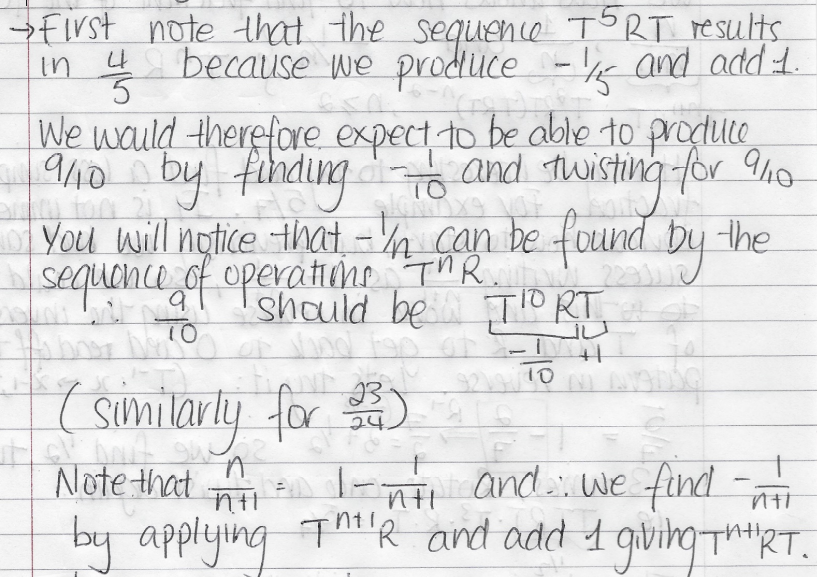 →First note that the sequence T⁵RT results
in 4/5 because we produce -1/5 and add 1.
We would therefore expect to be able to produce
9/10 by finding -1/10 and twisting for 9/10
You will notice that -1/n can be found by the
sequence of operations TⁿR.
∴ 9/10 should be T¹⁰RT
-1/10 +1
(similarly for 23/24)
Note that n/n+1 = 1 - 1/n+1 and ∴ we find -1/n+1
by applying Tⁿ⁺¹R and add 1 giving Tⁿ⁺¹RT.